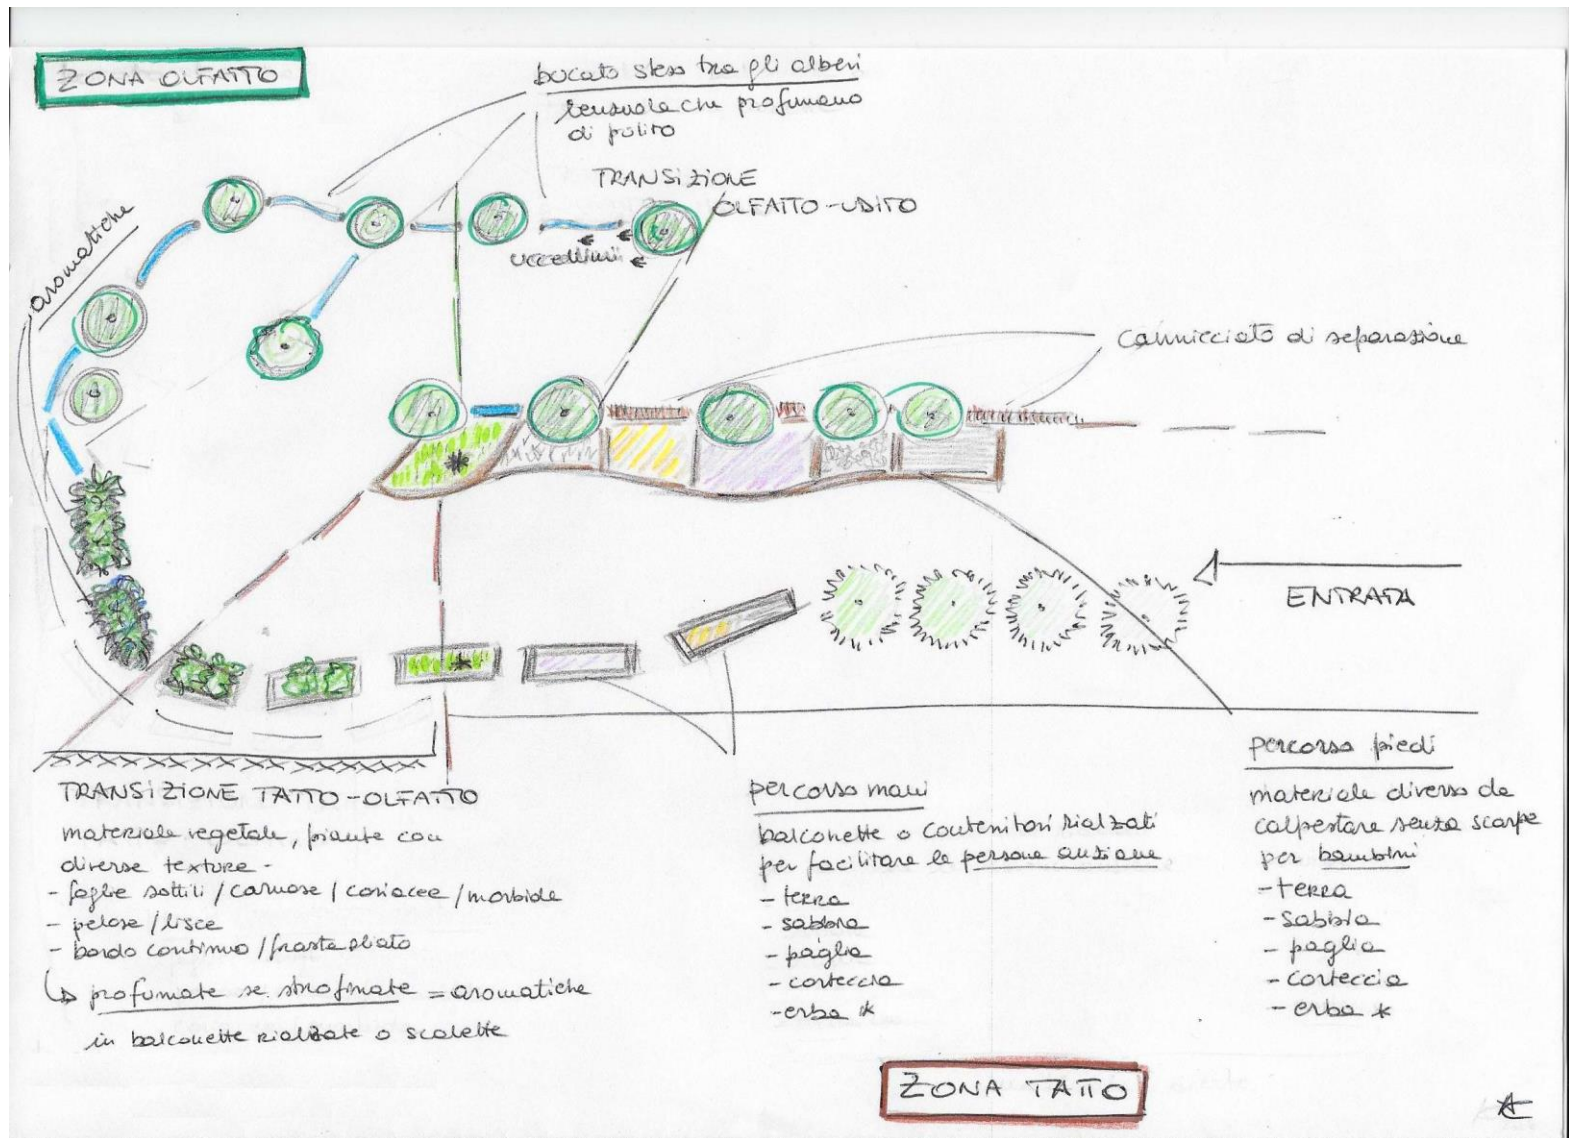 ZONA OLFATTO
bucato steso tra gli alberi
lenzuola che profumano
di pulito
TRANSIZIONE
OLFATTO-UDITO
uccellini
aromatiche
cannicciato di separazione
ENTRATA
TRANSIZIONE TATTO-OLFATTO
materiale vegetale, piante con
diverse texture -
- foglie sottili / carnose / coriacee / morbide
- pelose / lisce
- bordo continuo / frastagliato
↳ profumate se strofinate = aromatiche
in balconette rialzate o scalette
percorso mani
balconette o contenitori rialzati
per facilitare le persone anziane
- terra
- sabbia
- paglia
- corteccia
- erba *
percorso piedi
materiale diverso da
calpestare senza scarpe
per bambini
- terra
- sabbia
- paglia
- corteccia
- erba *
ZONA TATTO